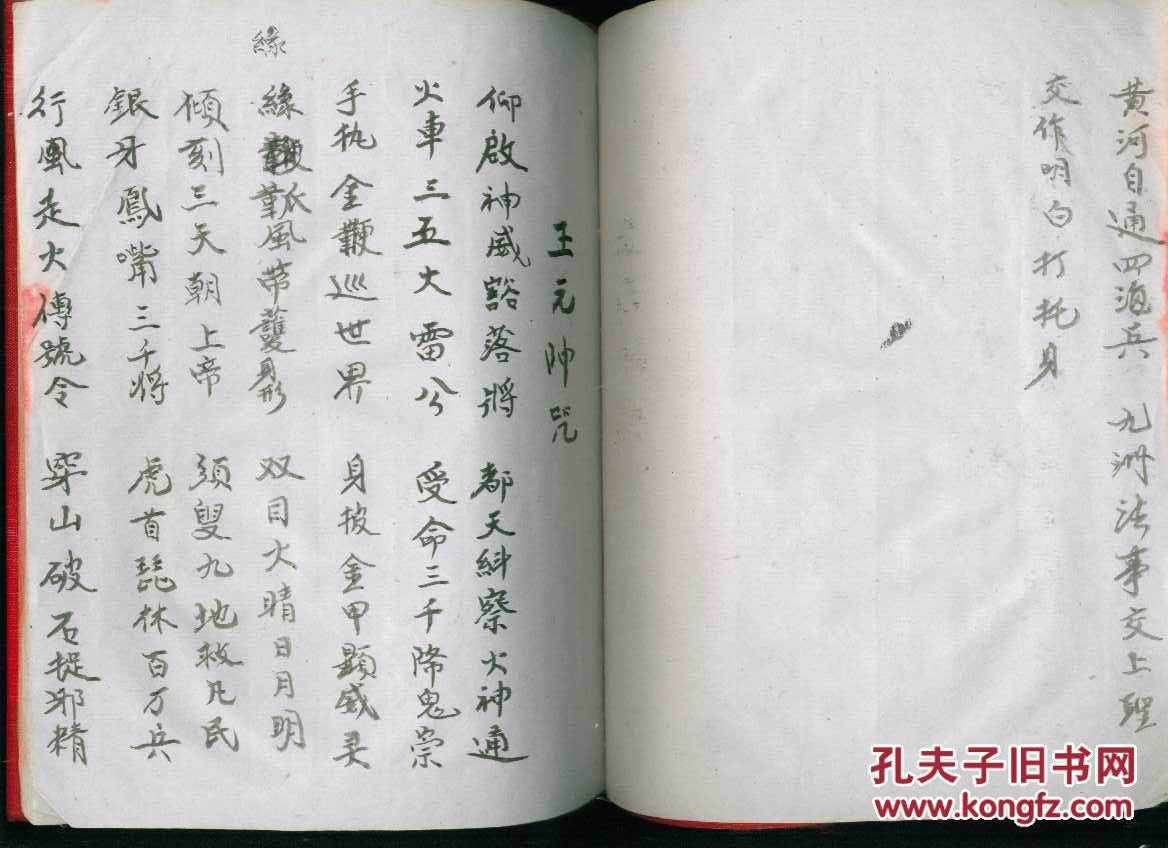 黄河自通四海兵 九洲法事交上聖
交作明白打扥身
王元帅咒
仰啟神威豁落将 都天糾察火神通
火車三五火雷公 受命三千降鬼祟
手执金鞭巡世界 身披金甲顕威灵
緣
緣風帶護身形 双目火晴日月明
傾刻三天朝上帝 須臾九地救凡民
銀牙鳳嘴三千将 虎首琵林百万兵
行風走火傳號令 穿山破石捉邪精
孔夫子旧书网
www.kongfz.com